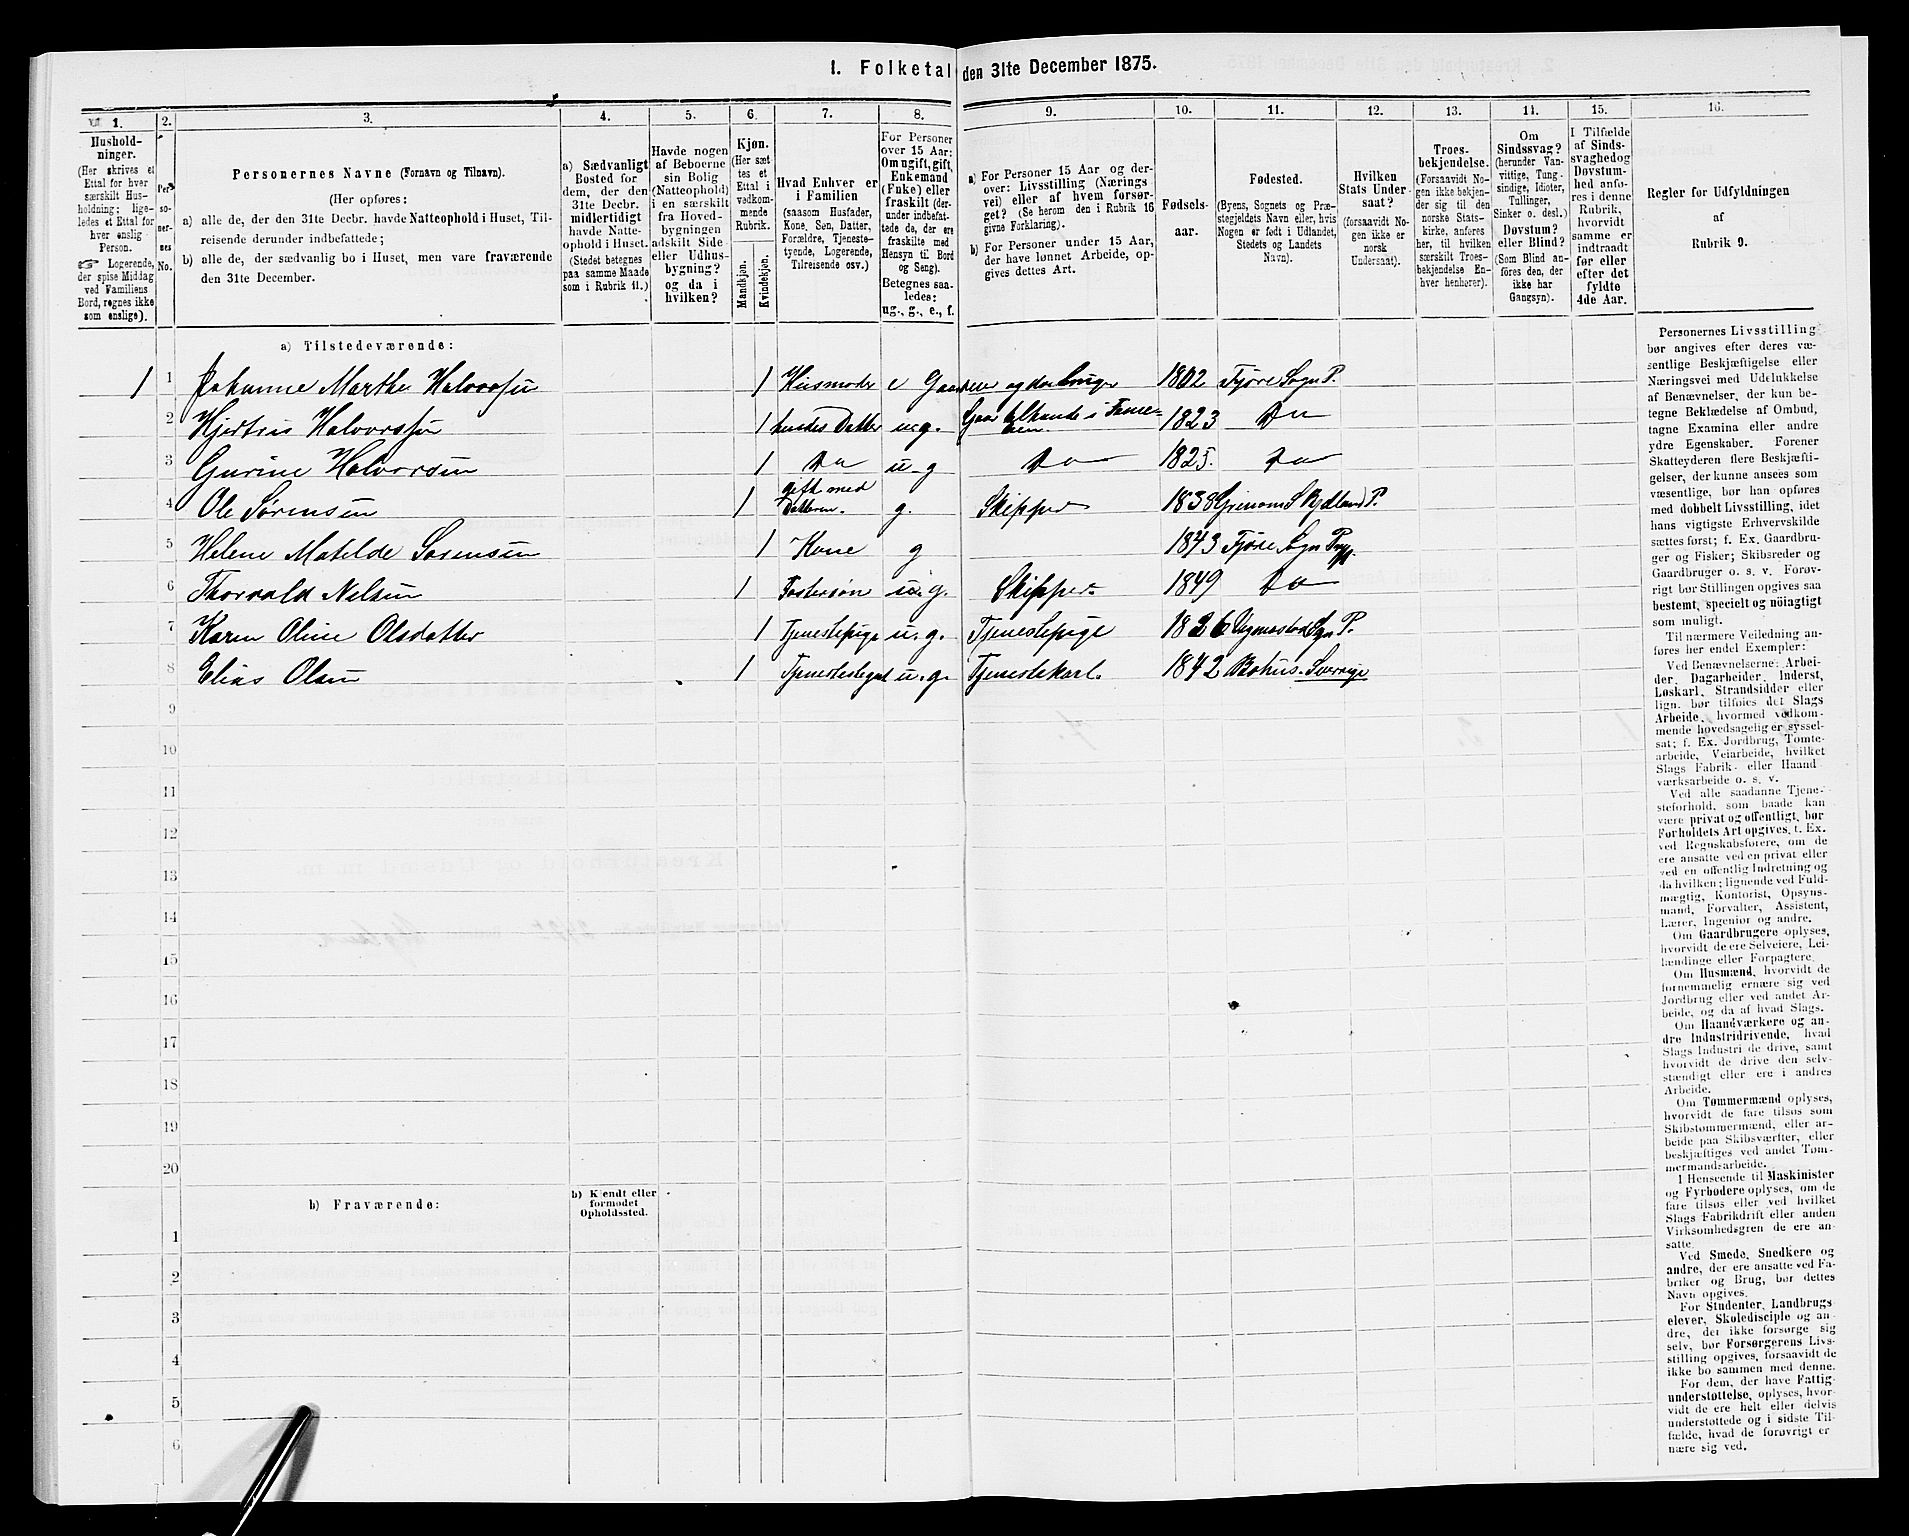 1. Folketal den 31te December 1875.
1. 2. 3. 4. 5. 6. 7. 8. 9. 10. 11. 12. 13. 14. 15. 16.
Hushold-
ninger.
(Her skrives et
Ettal for hver
særskilt Hus-
holdning; lige-
ledes et Ettal for
hver enslig
Person.
☞ Logerende,
der spise Middag
ved Familiens
Bord, regnes ikke
som enslige).
Per-
so-
ner-
nes
No.
Personernes Navne (Fornavn og Tilnavn).
(Her opføres:
a) alle de, der den 31te Decbr. havde Natteophold i Huset, Til-
reisende derunder indbefattede;
b) alle de, der sædvanlig bo i Huset, men vare fraværende
den 31te December.
a) Sædvanligt
Bosted for
dem, der den
31te Decbr.
midlertidigt
havde Natte-
ophold i Huset.
(Stedet betegnes
paa samme Maade
som i Rubrik 11.)
Havde nogen
af Beboerne
sin Bolig
(Natteophold)
i en særskilt
fra Hoved-
bygningen
adskilt Side-
eller Udhus-
bygning?
og da i
hvilken?
Kjøn.
(Her sæt-
tes et
Ettal i
vedkom-
mende
Rubrik.
Mandkjøn.
Kvindekjøn.
Hvad Enhver er
i Familien
(saasom Husfader,
Kone, Søn, Datter,
Forældre, Tjeneste-
tyende, Logerende,
Tilreisende osv.)
For Personer
over 15 Aar:
Om ugift, gift,
Enkemand
(Enke) eller
fraskilt (der-
under indbefat-
tede de, der ere
fraskilte med
Hensyn til Bord
og Seng).
Betegnes saa-
ledes:
ug., g., e., f.
a) For Personer 15 Aar og der-
over: Livsstilling (Nærings-
vei) eller af hvem forsør-
get? (Se herom den i Rubrik 16
givne Forklaring).
b) For Personer under 15 Aar,
der have lønnet Arbeide, op-
gives dettes Art.
Fødsels-
aar.
Fødested.
(Byens, Sognets og Præ-
stegjeldets Navn eller, hvis
Nogen er født i Udlandet,
Stedets og Landets
Navn).
Hvilken
Stats Under-
saat?
(forsaavidt No-
gen ikke er
norsk
Undersaat).
Troes-
bekjendelse.
(Forsaavidt No-
gen ikke bekjen-
der sig til den
norske Stats-
kirke, anføres
her, til hvilken
særskilt Troes-
bekjendelse En-
hver henhører).
Om
Sindssvag?
(herunder Van-
vittige, Tung-
sindige, Idioter,
Tullinger,
Sinker o. desl.)
Døvstum?
eller Blind?
(Som Blind an-
føres den, der
ikke har
Gangsyn).
I Tilfælde
af Sinds-
svaghed og
Døvstum-
hed anfø-
res i denne
Rubrik,
hvorvidt
samme er
indtraadt
før eller
efter det
fyldte
4de Aar.
Regler for Udfyldningen
af
Rubrik 9.
a) Tilstedeværende:
1 1 Johanne Marthe Halvorsen 1 Husmoder e 1802 Fjære Sogn P.
2 Halvorsen 1 hendes Datter u.g. 1823 Do
3 Gurine Halvorsen 1 Do u.g Do 1825. Do
4 Ole Sørensen 1 gift med Datteren. g. Skipper 1838
5 Helene Matilde Sørensen 1 Kone g 1843 Fjære Sogn
6 Thorvald Nelsen 1 Fostersøn u.g. Skipper 1849 Do
7 Karen Oline Olsdatter 1 Tjenestepige u.g. Tjenestepige 1826
8 Elias Olsen 1 u.g. Tjenestekarl. 1842 Bohus. Sverige
9
10
11
12
13
14
15
16
17
18
19
20
b) Fraværende:
b) Kjendt eller
formodet
Opholdssted.
1
2
3
4
5
6
Personernes Livsstilling
bør angives efter deres væ-
sentlige Beskjæftigelse eller
Næringsvei med Udelukkelse
af Benævnelser, der kun be-
tegne Beklædelse af Ombud,
tagne Examina eller andre
ydre Egenskaber. Forener
Skatteyderen flere Beskjæfti-
gelser, der kunne ansees som
væsentlige, bør han opføres
med dobbelt Livsstilling, idet
hans vigtigste Erhvervskilde
sættes først; f. Ex. Gaardbru-
ger og Fisker; Skibsreder og
Gaardbruger o. s. v. Forøv-
rigt bør Stillingen opgives saa
bestemt, specielt og nøiagtigt
som muligt.
Til nærmere Veiledning an-
føres her endel Exempler:
Ved Benævnelserne: Arbei-
der, Dagarbeider, Inderst,
Løskarl, Strandsidder eller
lign. bør tilføies det Slags
Arbeide, hvormed vedkom-
mende hovedsagelig er syssel-
sat; f. Ex. Jordbrug, Tomte-
arbeide, Veiarbeide, hvilket
Slags Fabrik- eller Haand-
værksarbeide o. s. v.
Ved alle saadanne Tjene-
steforhold, som baade kan
være privat og offentligt, bør
Forholdets Art opgives, t. Ex.
ved Regnskabsførere, om de
ere ansatte ved en privat eller
ved en offentlig Indretning og
da hvilken; lignende ved Fuld-
mægtig, Kontorist, Opsyns-
mand, Forvalter, Assistent,
Lærer, Ingeniør og andre.
Om Gaardbrugere oplyses,
hvorvidt de ere Selveiere, Lei-
lændinge eller Forpagtere.
Om Husmænd, hvorvidt de
fornemmelig ernære sig ved
Jordbrug eller ved andet Ar-
beide, og da af hvad Slags.
Om Haandværkere og an-
dre Industridrivende, hvad
Slags Industri de drive, samt
hvorvidt de drive den selv-
stændigt eller ere i andres
Arbeide.
Om Tømmermænd oplyses,
hvorvidt de fare tilsøs som
Skibstømmermænd, eller ar-
beide paa Skibsværfter, eller
beskjæftiges ved andet Tøm-
mermandsarbeide.
I Henseende til Maskinister
og Fyrbødere oplyses, om de
fare tilsøs eller ved hvilket
Slags Fabrikdrift eller anden
Virksomhedsgren de ere an-
satte.
Ved Smede, Snedkere og
andre, der ere ansatte ved Fa-
briker og Brug, bør dettes
Navn opgives.
For Studenter, Landbrugs-
elever, Skoledisciple og an-
dre, der ikke forsørge sig
selv, bør Forsørgerens Livs-
stilling opgives, forsaavidt de
ikke bo sammen med denne.
For dem, der have Fattig-
understøttelse, oplyses, hvor-
vidt de ere helt eller delvis
understøttede og i sidste Til-
fælde, hvad de forøvrigt er-
nære sig ved.